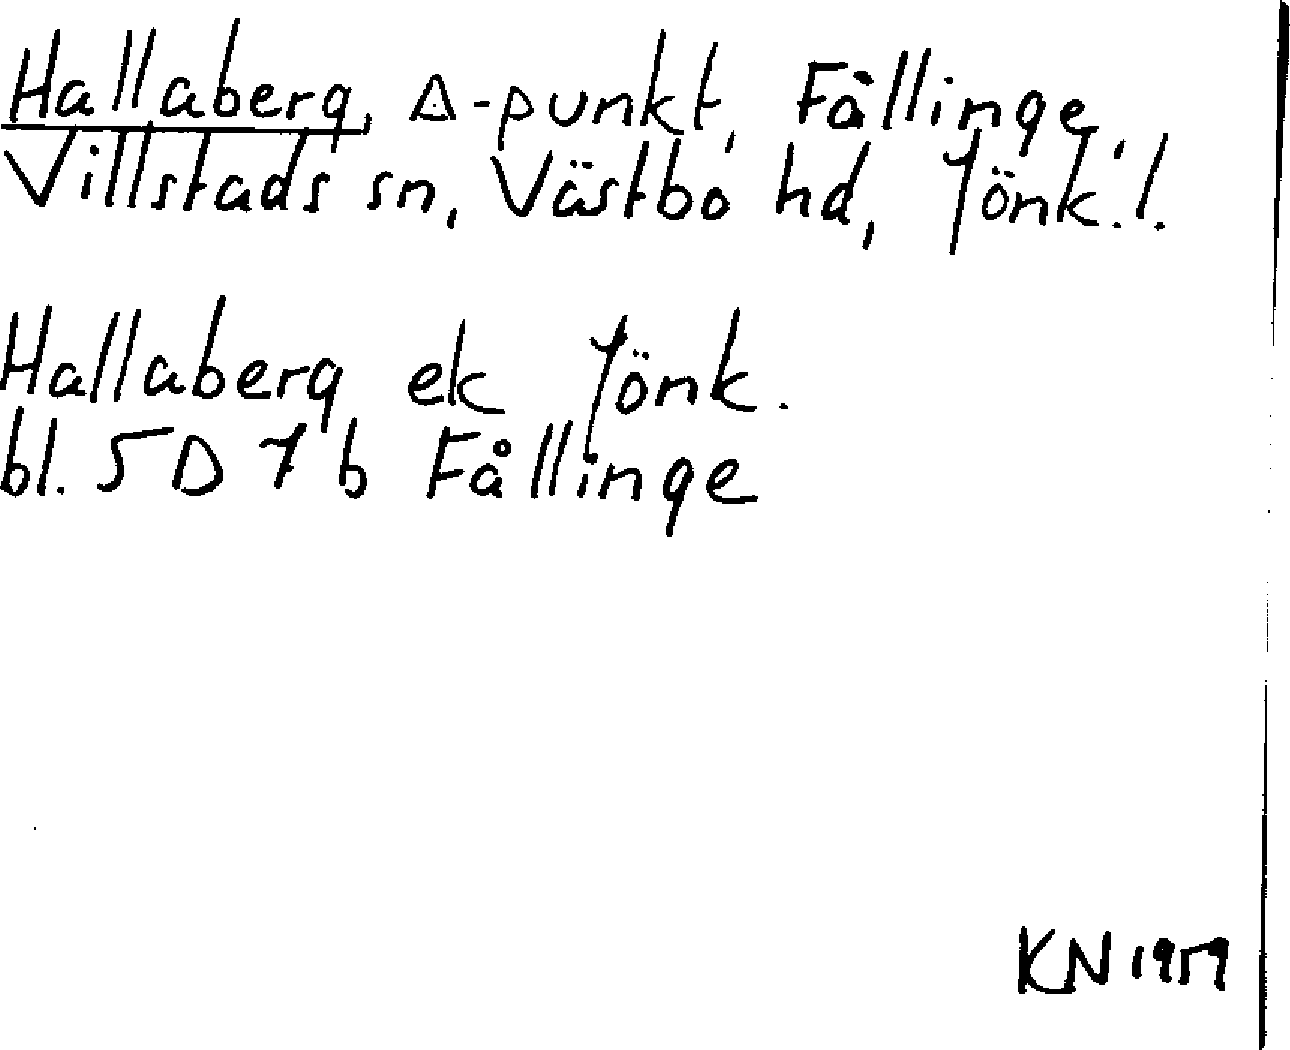 Hallaberg, Δ-punkt, Fållinge,
Villstads sn, Västbo hd, Jönk. l.
Hallaberg ek Jönk.
bl. 5D 7b Fållinge
KN 1959